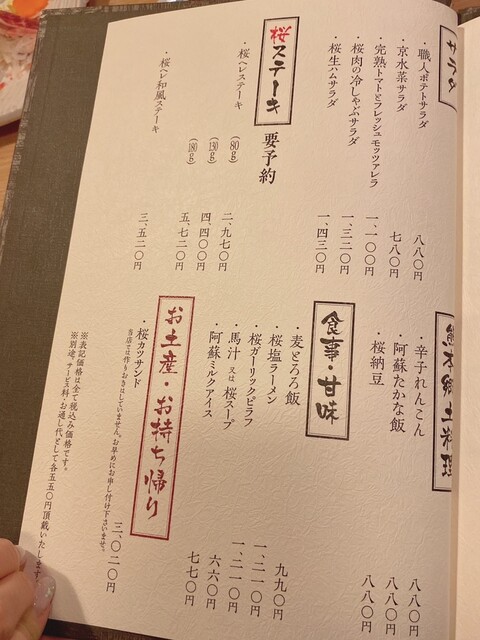 サラダ
・職人ポテトサラダ 八八〇円
・京水菜サラダ 七八〇円
・完熟トマトとフレッシュモッツァレラ 一、一〇〇円
・桜肉の冷しゃぶサラダ 一、三二〇円
・桜生ハムサラダ 一、四三〇円
桜ステーキ 要予約
・桜ヘレステーキ (80g) 二、九七〇円
(130g) 四、四〇〇円
(180g) 五、七二〇円
・桜ヘレ和風ステーキ 三、五二〇円
熊本郷土料理
・辛子れんこん 八八〇円
・阿蘇たかな飯 八八〇円
・桜納豆 八八〇円
食事・甘味
・麦とろろ飯 九九〇円
・桜塩ラーメン 一、二一〇円
・桜ガーリックピラフ 一、二一〇円
・馬汁 又は 桜スープ 六六〇円
・阿蘇ミルクアイス 七七〇円
お土産・お持ち帰り
・桜カツサンド 三、〇二〇円
当店では作りおきはしていません。お早めにお申し付け下さいませ。
※表記価格は全て税込み価格です。
※別途、サービス料・お通し代として各五五〇円頂戴いたします